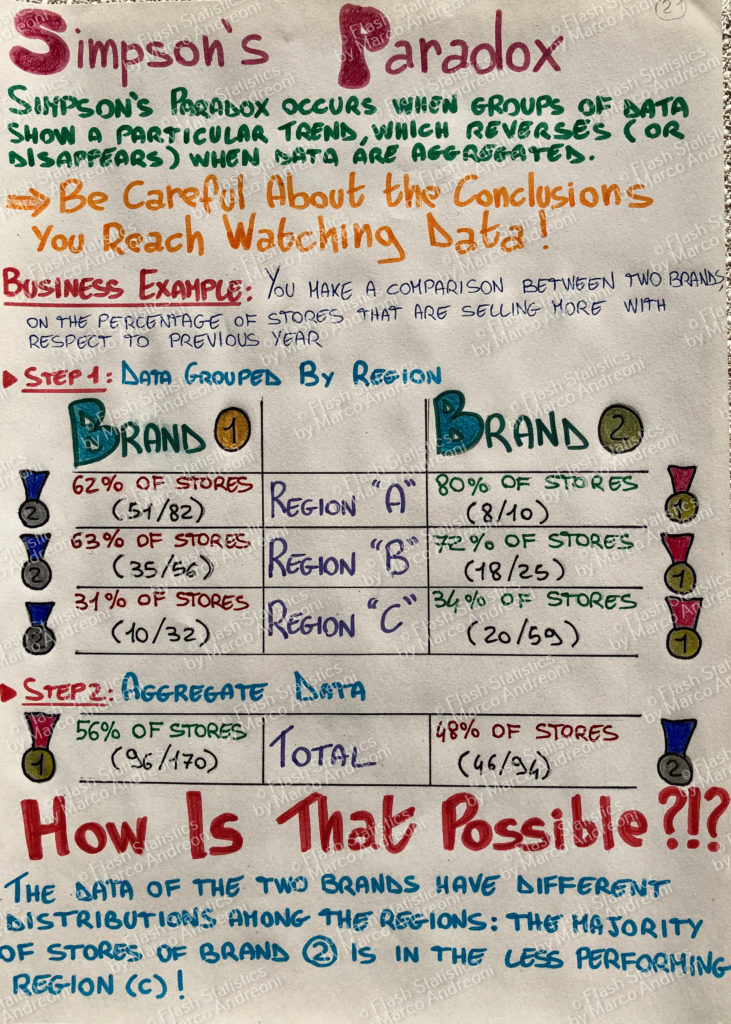 21
Simpson's Paradox
SIMPSON'S PARADOX OCCURS WHEN GROUPS OF DATA
SHOW A PARTICULAR TREND, WHICH REVERSES (OR
DISAPPEARS) WHEN DATA ARE AGGREGATED.
→ Be Careful About the Conclusions
You Reach Watching Data!
BUSINESS EXAMPLE: YOU MAKE A COMPARISON BETWEEN TWO BRANDS
ON THE PERCENTAGE OF STORES THAT ARE SELLING MORE WITH
RESPECT TO PREVIOUS YEAR
▶ STEP 1: DATA GROUPED BY REGION
BRAND 1 BRAND 2
62% OF STORES REGION "A" 80% OF STORES
2 (51/82) (8/10) 1
63% OF STORES REGION "B" 72% OF STORES
2 (35/56) (18/25) 1
31% OF STORES REGION "C" 34% OF STORES
2 (10/32) (20/59) 1
▶ STEP 2: AGGREGATE DATA
56% OF STORES TOTAL 48% OF STORES
1 (96/170) (46/94) 2
How Is That Possible?!?
THE DATA OF THE TWO BRANDS HAVE DIFFERENT
DISTRIBUTIONS AMONG THE REGIONS: THE MAJORITY
OF STORES OF BRAND 2 IS IN THE LESS PERFORMING
REGION (C)!
© Flash Statistics
by Marco Andreoni